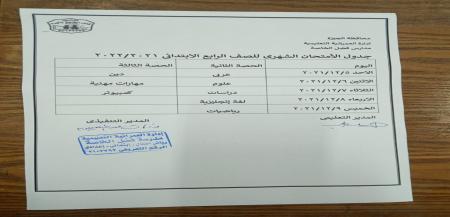 محافظة الجيزة
ادارة العمرانية التعليمية
مدارس فضل الخاصة
جدول الأمتحان الشهرى للصف الرابع الابتدائى ٢٠٢٢/٢٠٢١
اليوم الحصة الثانية الحصة الثالثة
الاحد ٢٠٢١/١٢/٥ عربى دين
الاثنين ٢٠٢١/١٢/٦ علوم مهارات مهنية
الثلاثاء ٢٠٢١/١٢/٧ دراسات كمبيوتر
الاربعاء ٢٠٢١/١٢/٨ لغة إنجليزية
الخميس ٢٠٢١/١٢/٩ رياضيات
المدير التعليمى المدير التنفيذى
إدارة العمرانية التعليمية
مدرسة فضل الخاصة